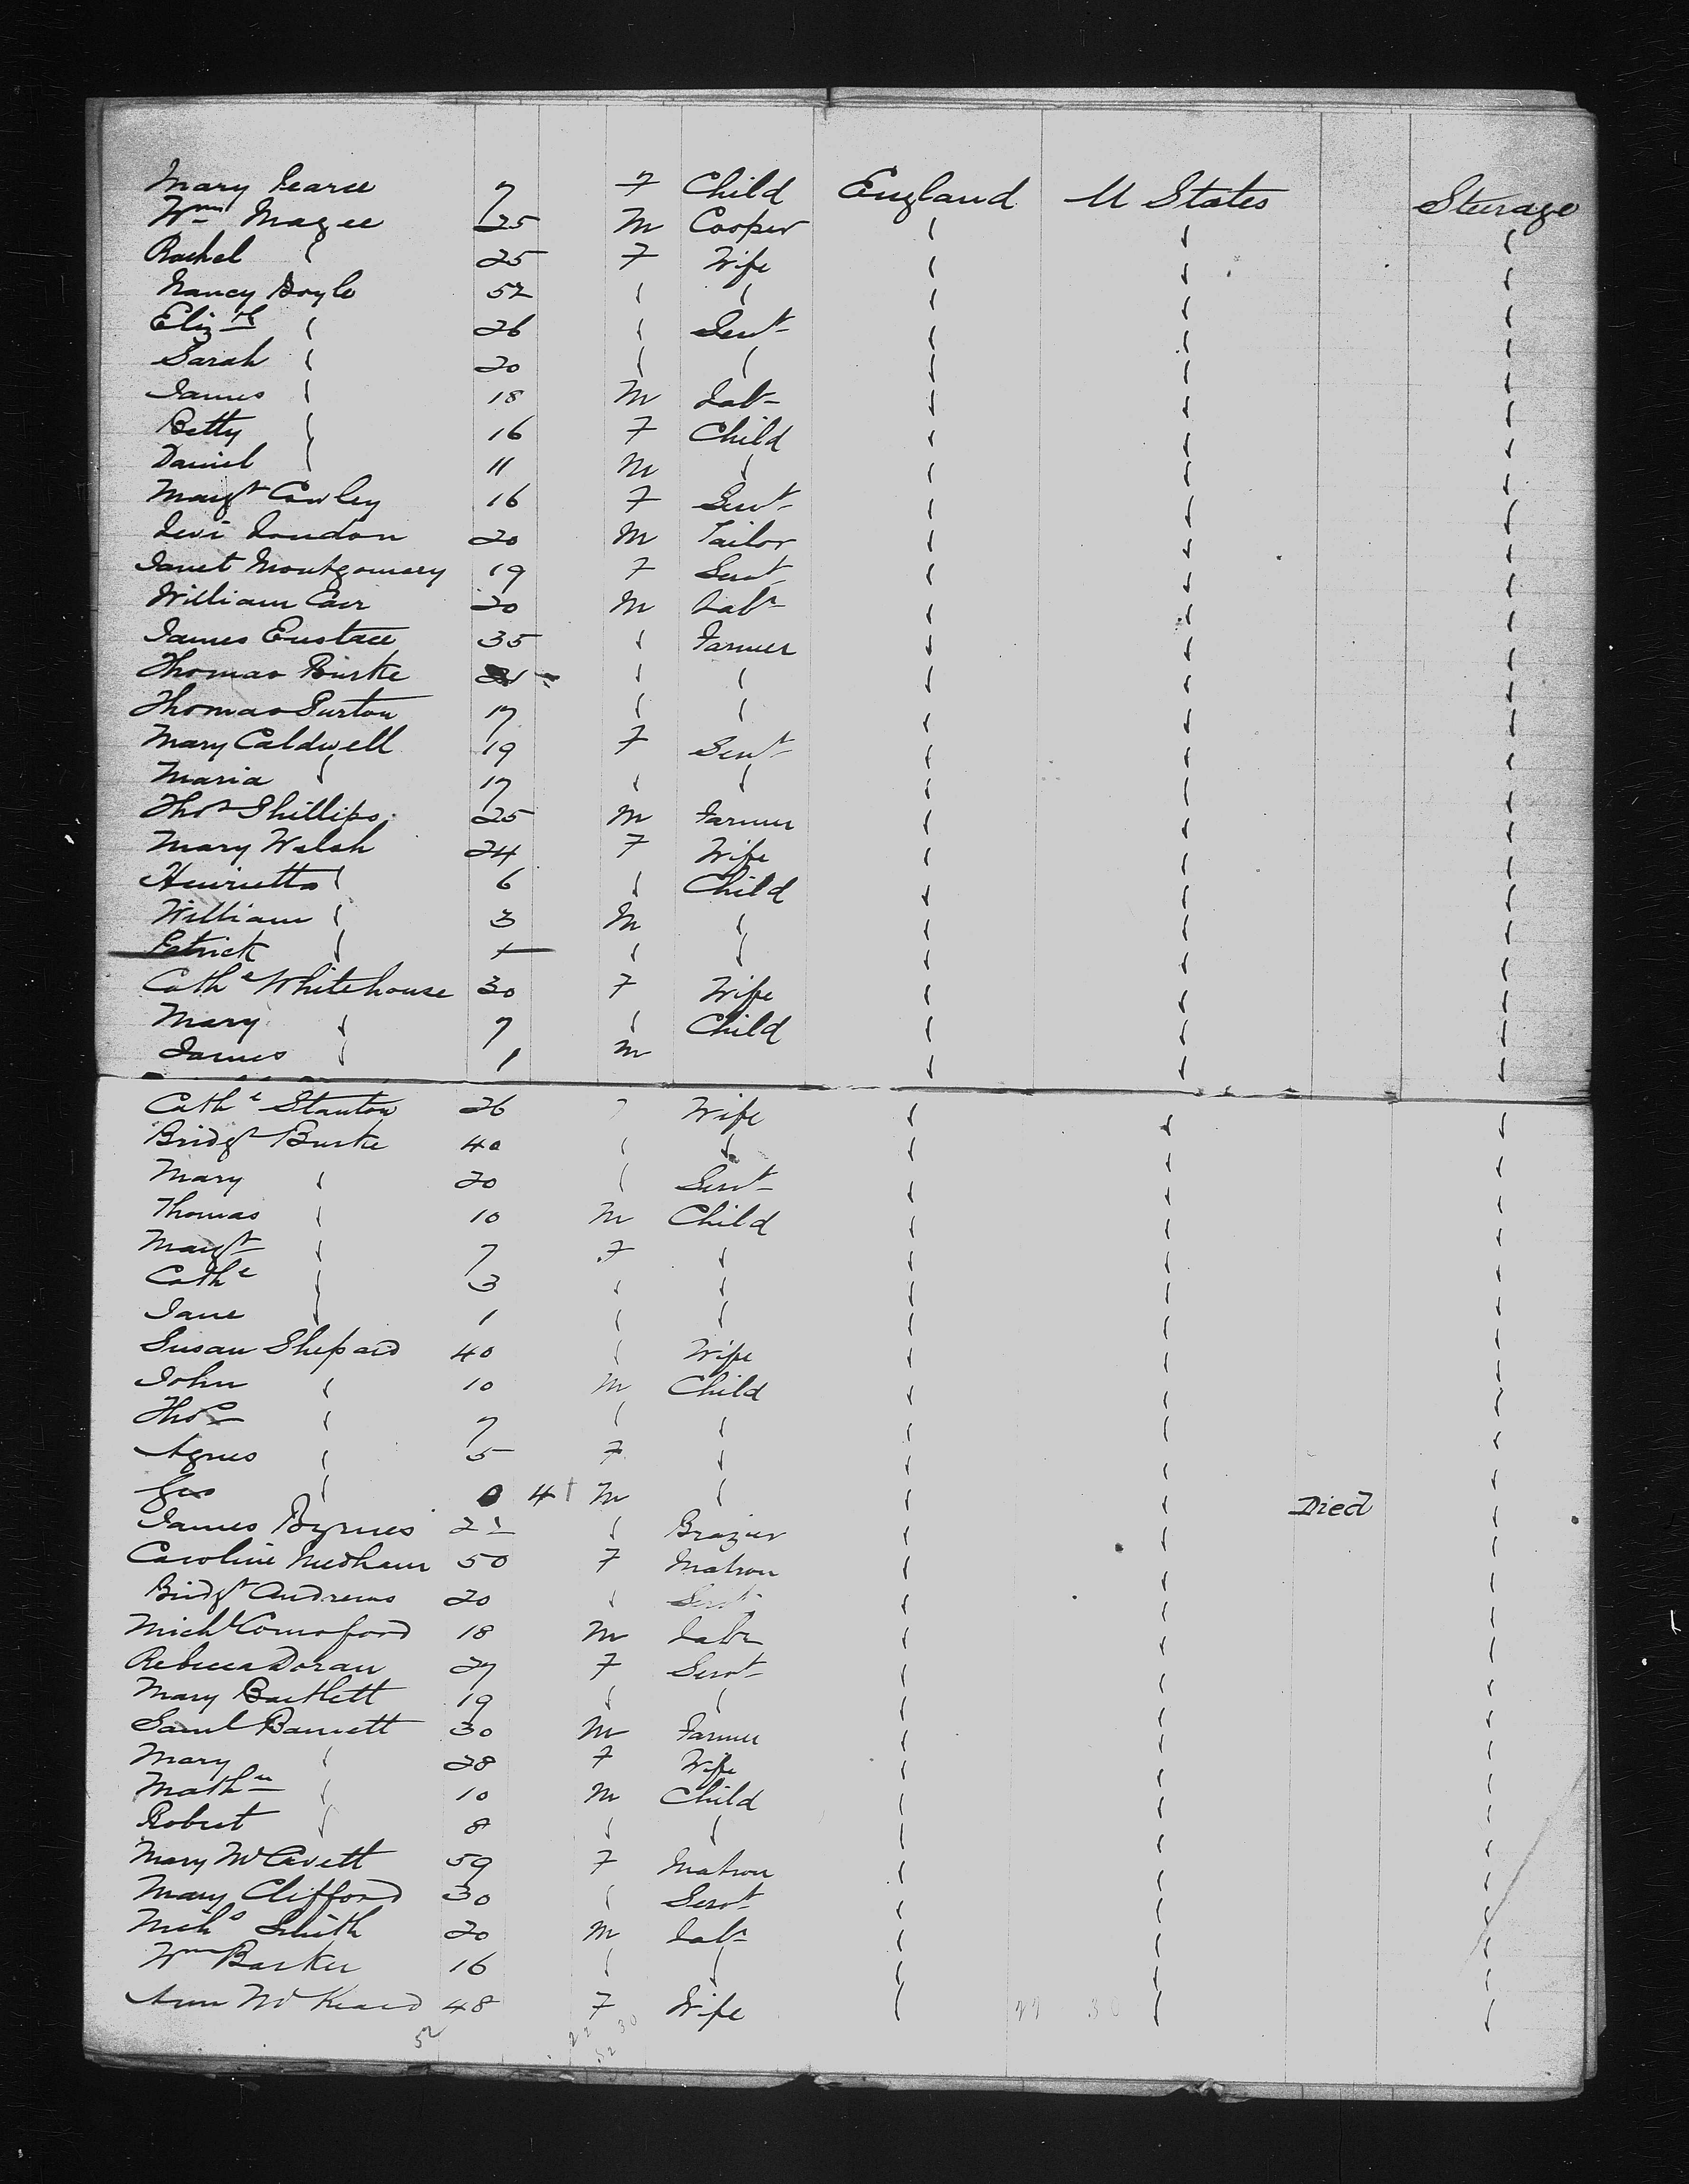 Mary Pearce 7 F Child England U States Steerage
Wm Magee 25 M Cooper
Rachel " 25 F Wife
Nancy Boyle 52 " "
Elizth " 26 " Servt
Sarah " 20 " "
James " 18 M Labr
Betty " 16 F Child
Daniel " 11 M "
Margt Cowley 16 F Servt
Levi Loudon 20 M Tailor
Janet Montgomery 19 F Servt
William Carr 20 M Labr
James Eustace 35 " Farmer
Thomas Burke 21 " "
Thomas Gurton 17 " "
Mary Caldwell 19 F Servt
Maria " 17 " "
Thos Phillips 25 M Farmer
Mary Walsh 24 F Wife
Henrietta " 6 " Child
William " 3 M "
Patrick " 1 " "
Cathe Whitehouse 30 F Wife
Mary " 7 " Child
James " 1 M
Cathe Stanton 26 " Wife
Bridgt Burke 40 " "
Mary " 20 " Servt
Thomas " 10 M Child
Margt " 7 F "
Cathe " 3 " "
Jane " 1 " "
Susan Shepard 40 " Wife
John " 10 M Child
Thos " 7 " "
Agnes " 5 F "
Geo " 0 4 M " Died
James Byrnes 22 " Brazier
Caroline Needham 50 F Matron
Bridgt Andrews 20 " Servt
Michl Comoford 18 M Labr
Rebecca Doran 27 F Servt
Mary Bartlett 19 " "
Saml Barnett 30 M Farmer
Mary " 28 F Wife
Mathw " 10 M Child
Robert " 8 " "
Mary McCavett 59 F Matron
Mary Clifford 30 " Servt
Nichs Smith 20 M Labr
Wm Barker 16 " "
Ann McKeand 48 F Wife 22 30
52 22 30
52